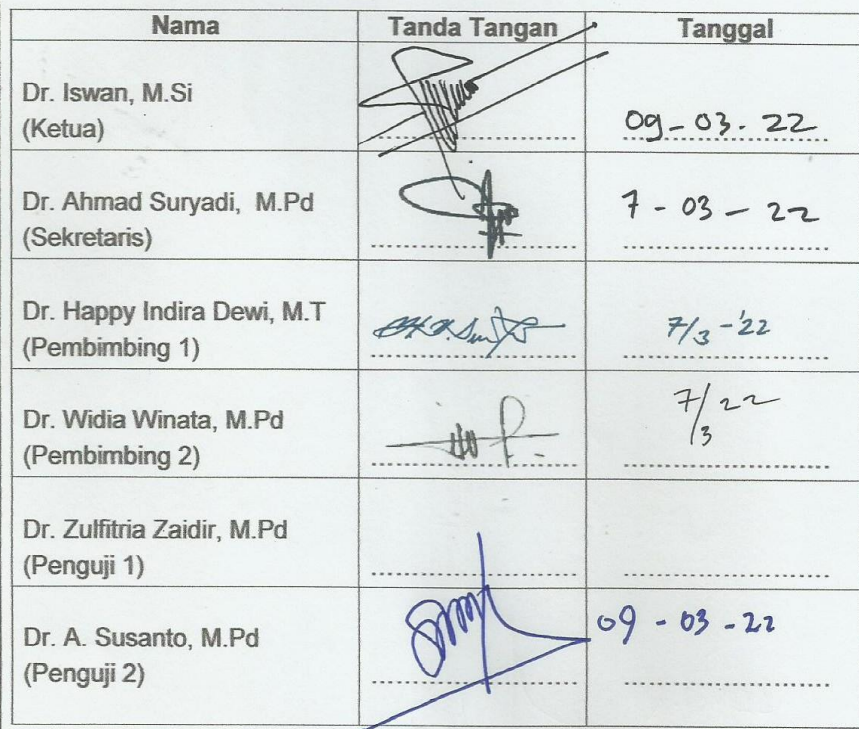 Nama Tanda Tangan Tanggal
Dr. Iswan, M.Si
(Ketua) 09-03-22
Dr. Ahmad Suryadi, M.Pd 7-03-22
(Sekretaris)
Dr. Happy Indira Dewi, M.T 7/3-'22
(Pembimbing 1)
Dr. Widia Winata, M.Pd 7/3 22
(Pembimbing 2)
Dr. Zulfitria Zaidir, M.Pd
(Penguji 1)
Dr. A. Susanto, M.Pd 09-03-22
(Penguji 2)